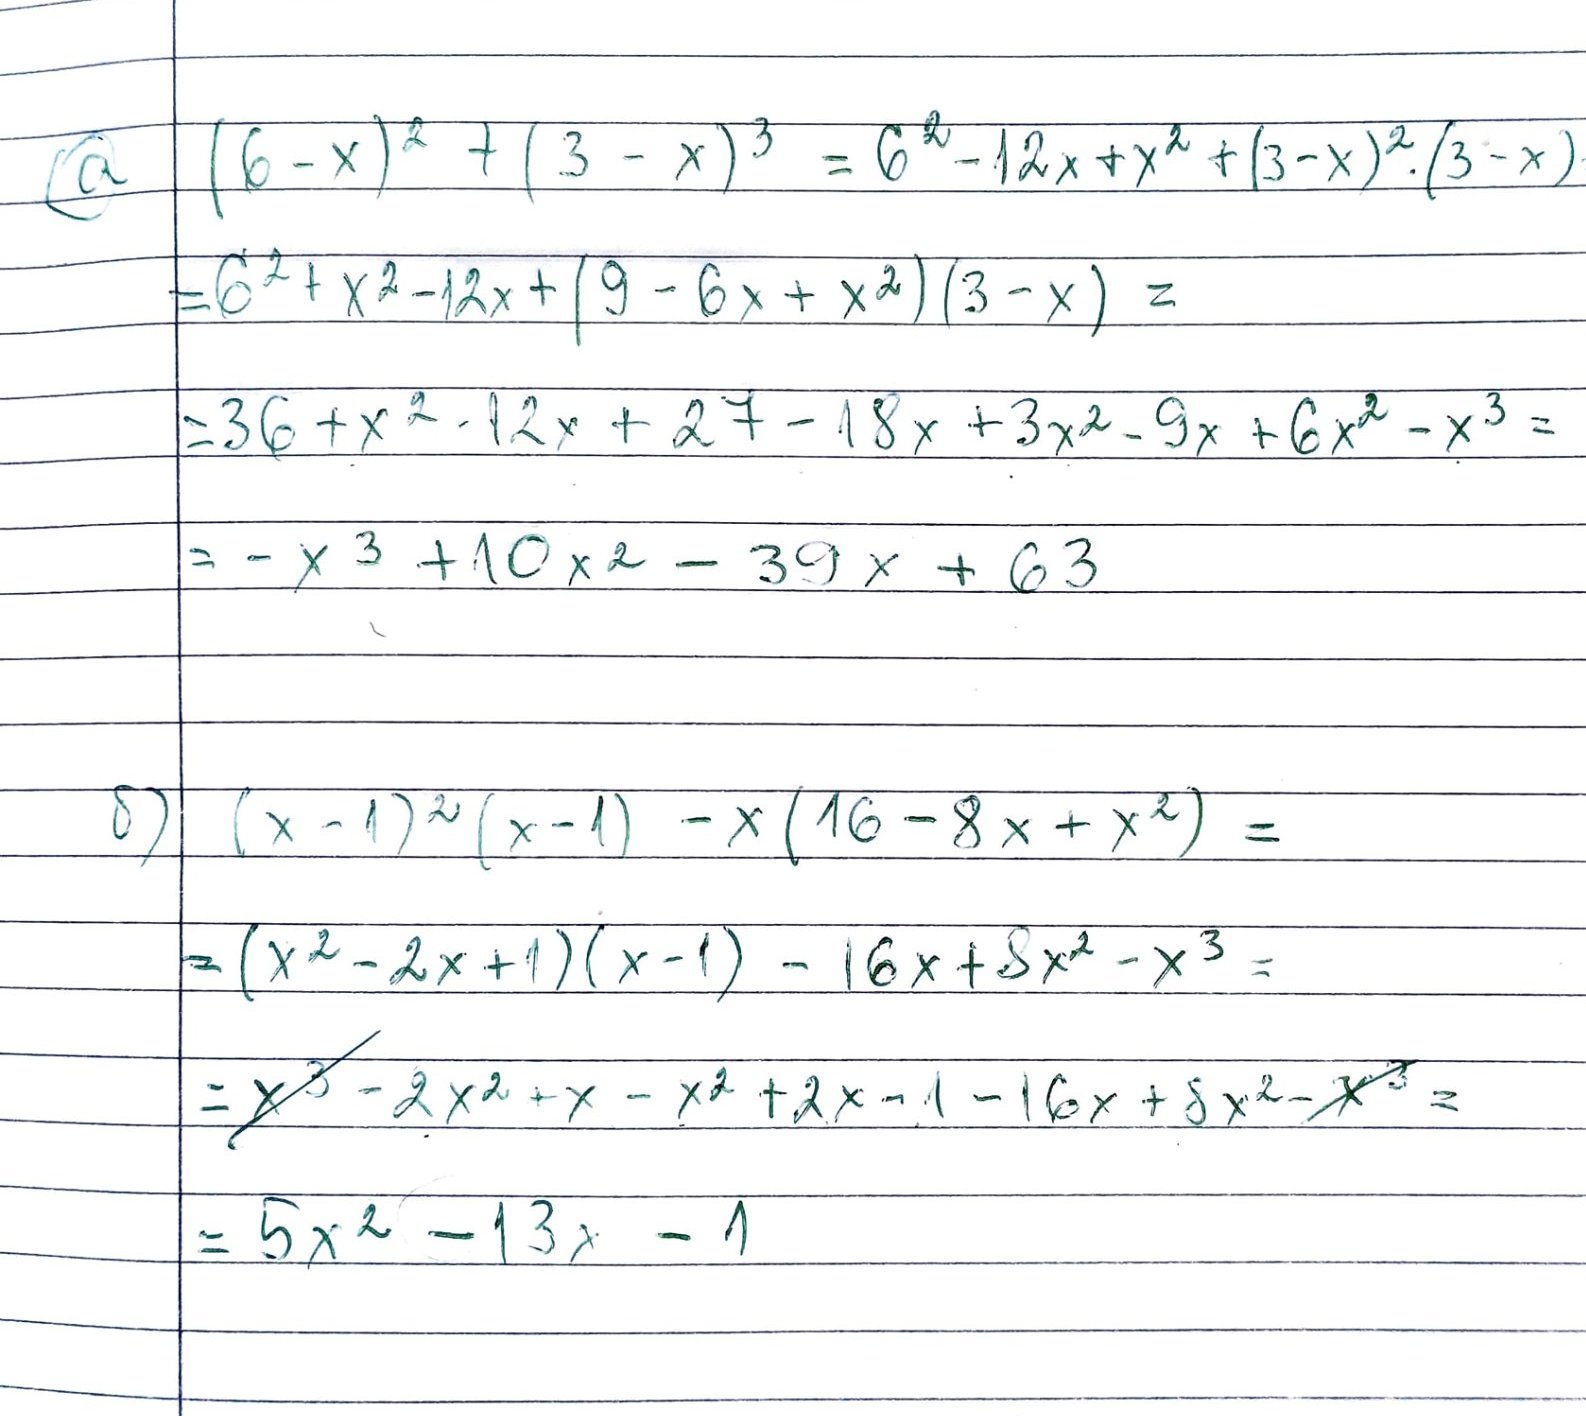 а) (6 - x)² + (3 - x)³ = 6² - 12x + x² + (3 - x)² · (3 - x)
= 6² + x² - 12x + (9 - 6x + x²)(3 - x) =
= 36 + x² - 12x + 27 - 18x + 3x² - 9x + 6x² - x³ =
= - x³ + 10x² - 39x + 63
б) (x - 1)² (x - 1) - x(16 - 8x + x²) =
= (x² - 2x + 1)(x - 1) - 16x + 8x² - x³ =
= x³ - 2x² + x - x² + 2x - 1 - 16x + 8x² - x³ =
= 5x² - 13x - 1